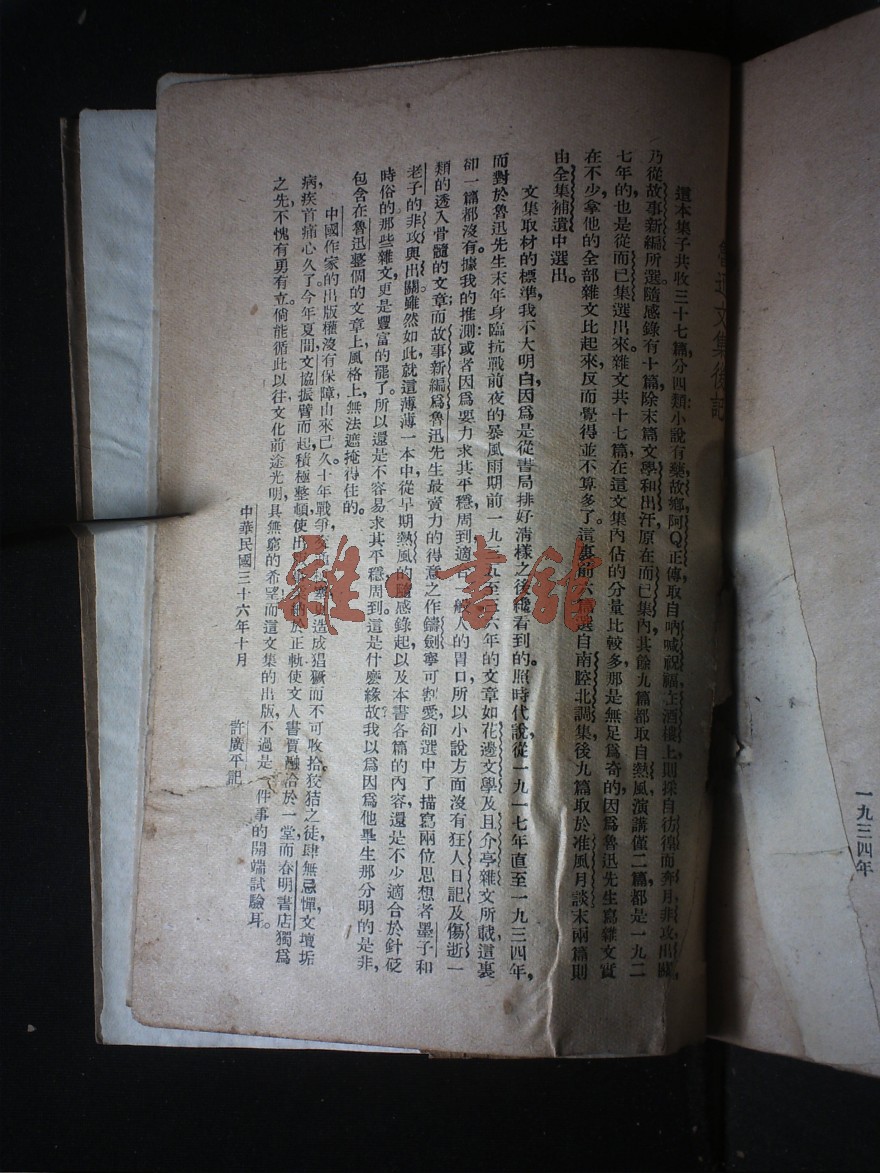 一九三四年
魯迅文集後記
這本集子共收三十七篇,分四類:小說有藥,故鄉,阿Q正傳,取自吶喊,祝福,在酒樓上,則採自彷徨,而奔月,非攻,出關,
乃從故事新編所選。隨感錄有十篇,除末篇文學和出汗,原在而已集內,其餘九篇都取自熱風。演講僅二篇,都是一九二
七年的,也是從而已集選出來。雜文共十七篇,在這文集內佔的分量比較多,那是無足爲奇的,因爲魯迅先生寫雜文實
在不少,拿他的全部雜文比起來,反而覺得並不算多了。這裏前六 選自南腔北調集,後九篇取於准風月談,末兩篇則
由全集補遺中選出。
文集取材的標準,我不大明白,因爲是從書局排好清樣之後纔看到的。照時代說,從一九一七年直至一九三四年,
而對於魯迅先生末年身臨抗戰前夜的暴風雨期前一九三五至三六年的文章,如花邊文學及且介亭雜文所載,這裏
卻一篇都沒有。據我的推測:或者因爲要力求其平穩,周到,適合一般人的胃口,所以小說方面沒有狂人日記及傷逝一
類的透入骨髓的文章;而故事新編爲魯迅先生最賣力的得意之作鑄劍,寧可割愛,卻選中了描寫兩位思想者墨子和
老子的非攻與出關。雖然如此,就這薄薄一本中,從早期熱風的隨感錄起,以及本書各篇的內容,還是不少適合於針砭
時俗的,那些雜文更是豐富的罷了。所以還是不容易求其平穩,周到。這是什麽緣故?我以爲因爲他畢生那分明的是非,
包含在魯迅整個的文章上,風格上,無法遮掩得住的。
中國作家的出版權沒有保障,由來已久。十年戰爭, 造成猖獗而不可收拾。狡猾之徒,肆無忌憚,文壇垢
病,疾首痛心久了。今年夏間,文協振臂而起,積極整頓,使出 納於正軌,使文人書賈,融洽於一堂,而春明書店,獨爲
之先,不愧有勇有立。倘能循此以往,文化前途光明,具無窮的希望,而這文集的出版,不過是一件事的開端試驗耳。
中華民國三十六年十月
許廣平記
雜·書館